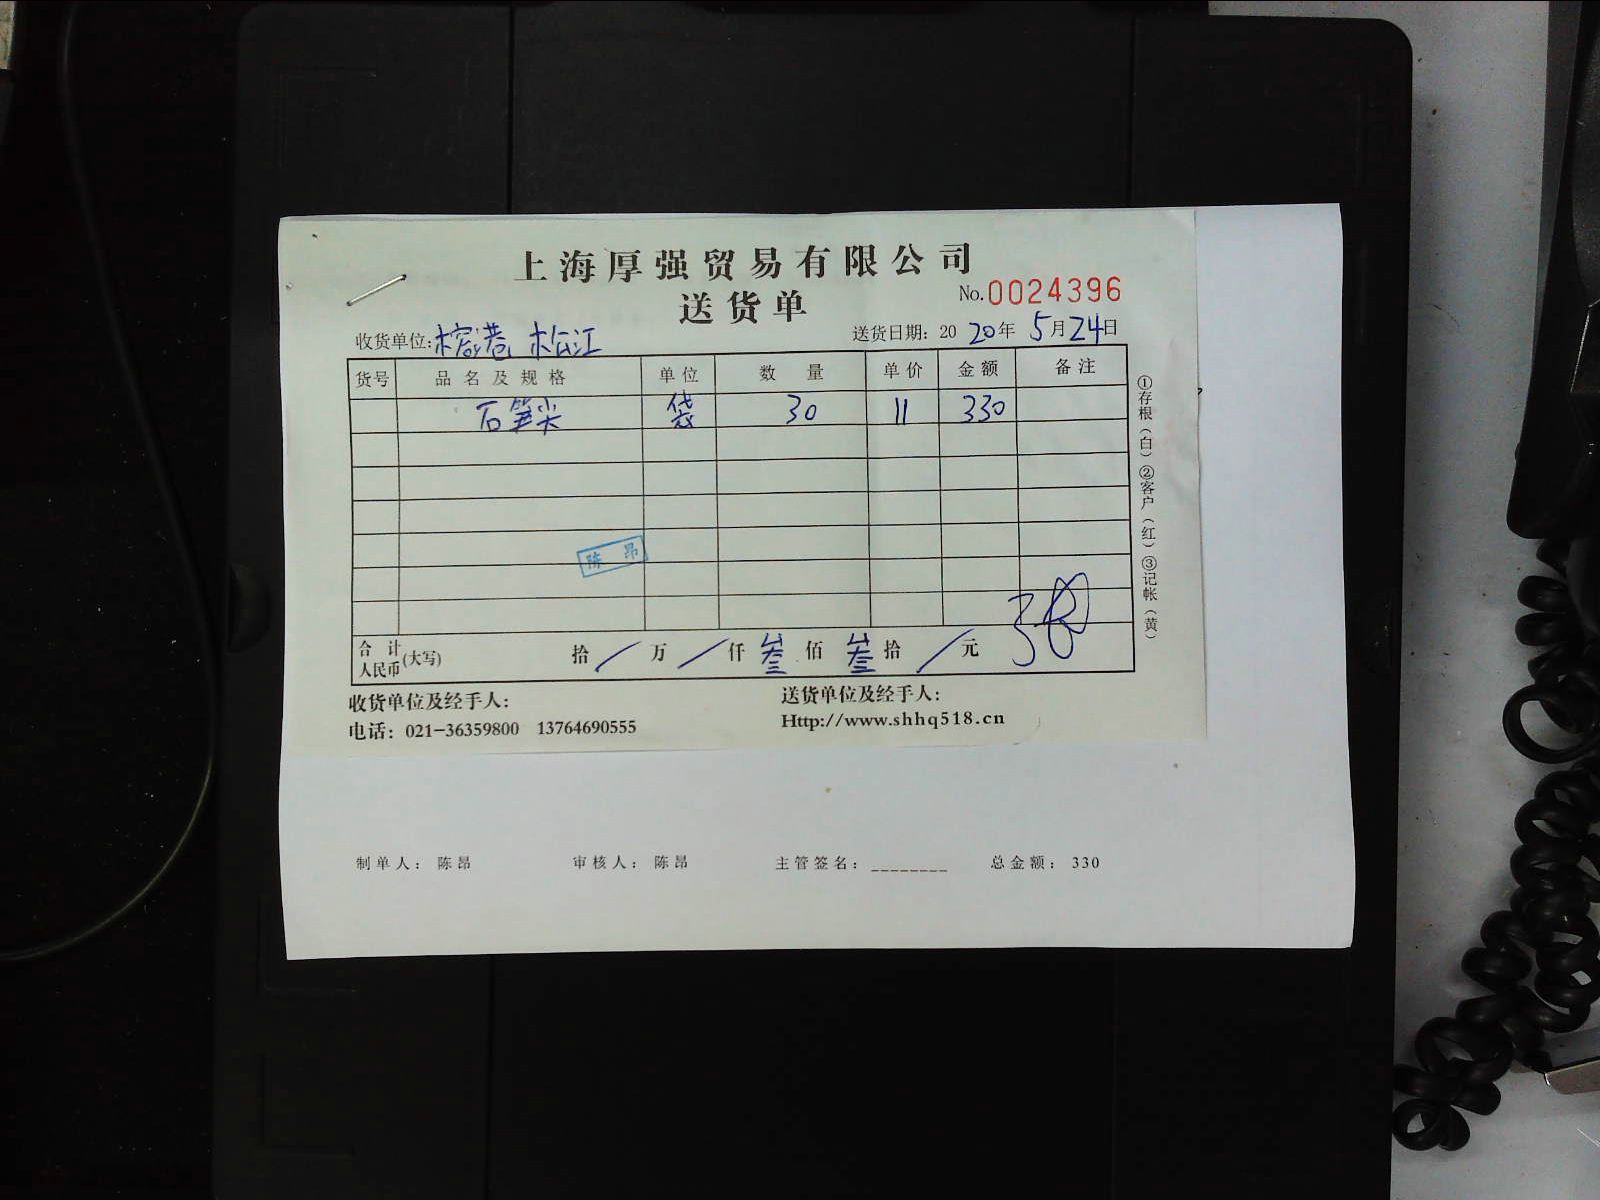 上海厚强贸易有限公司
送货单
No.0024396
收货单位:榕港 松江 送货日期: 2020年5月24日
货号 品名及规格 单位 数量 单价 金额 备注
石笋尖 袋 30 11 330
陈昂
合计人民币(大写) 拾/万/仟叁佰叁拾/元
收货单位及经手人: 送货单位及经手人:
电话: 021-36359800 13764690555 Http://www.shhq518.cn
①存根(白)②客户(红)③记帐(黄)
制单人: 陈昂 审核人: 陈昂 主管签名: ________ 总金额: 330